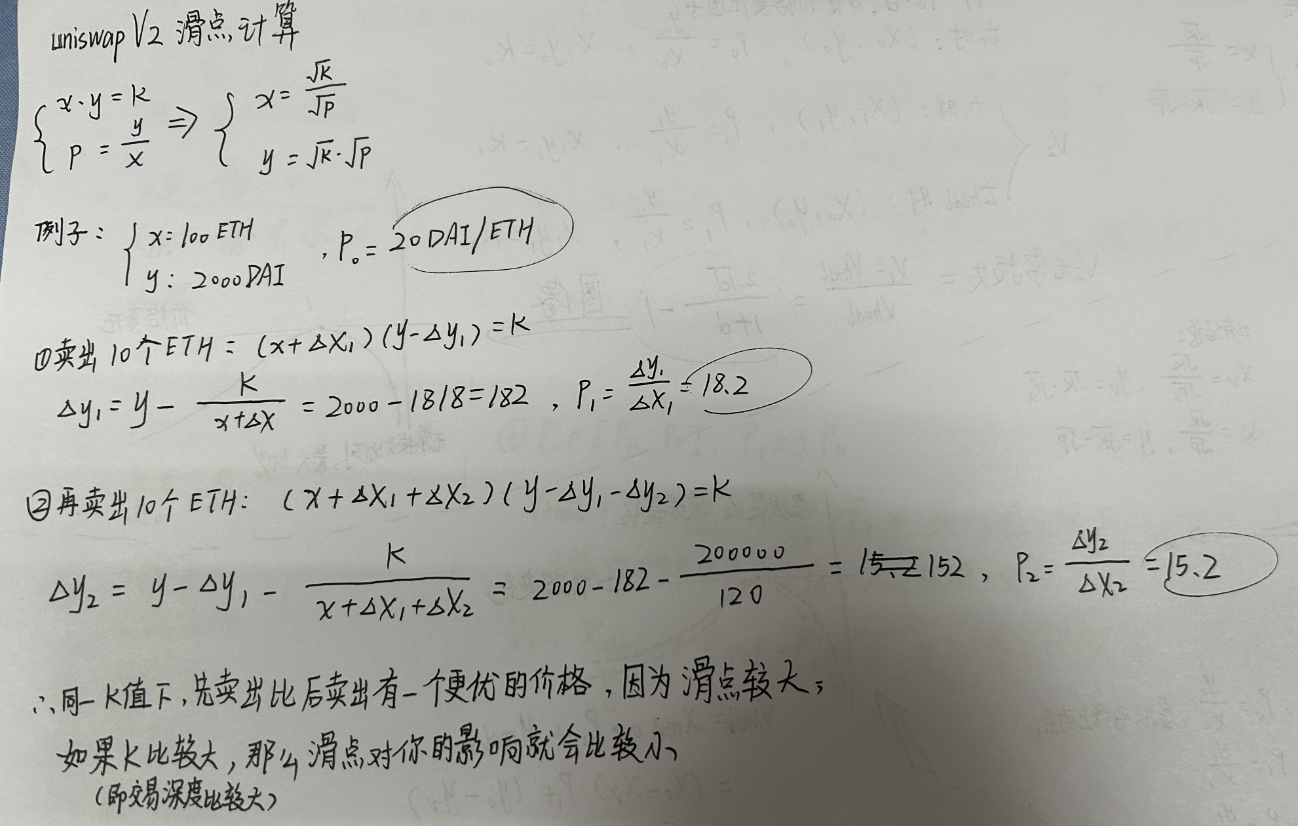 uniswap V2 滑点计算
{ x·y=k  P=y/x ⇒ { x=√k/√P  y=√k·√P
例子: { x=100ETH  y: 2000DAI , P₀=20DAI/ETH
①卖出10个ETH: (x+ΔX₁)(y-Δy₁)=K
Δy₁=y-K/(x+ΔX)=2000-1818=182, P₁=Δy₁/ΔX₁=18.2
②再卖出10个ETH: (x+ΔX₁+ΔX₂)(y-Δy₁-Δy₂)=K
Δy₂=y-Δy₁-K/(x+ΔX₁+ΔX₂)=2000-182-200000/120=15.2 152, P₂=Δy₂/ΔX₂=15.2
∴同一K值下,先卖出比后卖出有一个更优的价格,因为滑点较大;
如果K比较大,那么滑点对你的影响就会比较小
(即交易深度比较大)